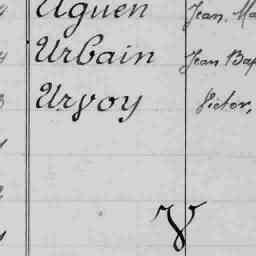 Uguen Jean, Ma
Urbain Jean Bap
Urvoy Victor,
V